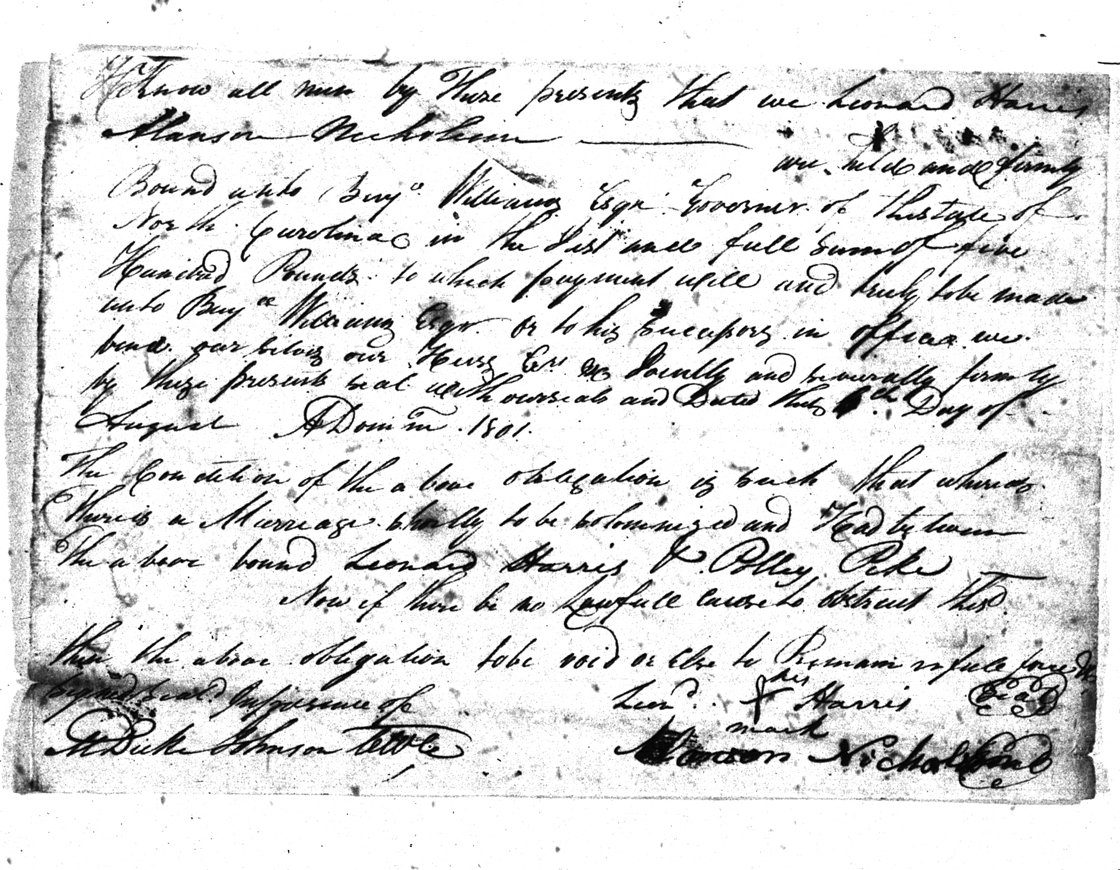 Know all men by These presents that we Leonard Harris
Manson Nicholson
are held and firmly
Bound unto Benjn Williams Esqr Governor of the state of
North Carolina in the Just and full sum of five
Hundred Pounds to which payment will and truly to be made
unto Benjn Williams Esqr. or to his successors in office we
bind our selves our Heirs Exrs Jointly and severally firmly
by these presents seal with our seals and Dated this Day of
August ADom 1801.
The Condition of the above obligation is such that whereas
There is a Marriage shortly to be solemnized and Had between
the above bound Leonard Harris & Polley Pike
Now if there be no Lawfull cause to obstruct
then the above obligation to be void or Else to Remain in full force &
Signed seald In presence of Leond. X Harris Seal
his
mark
Johnson Manson Nicholson